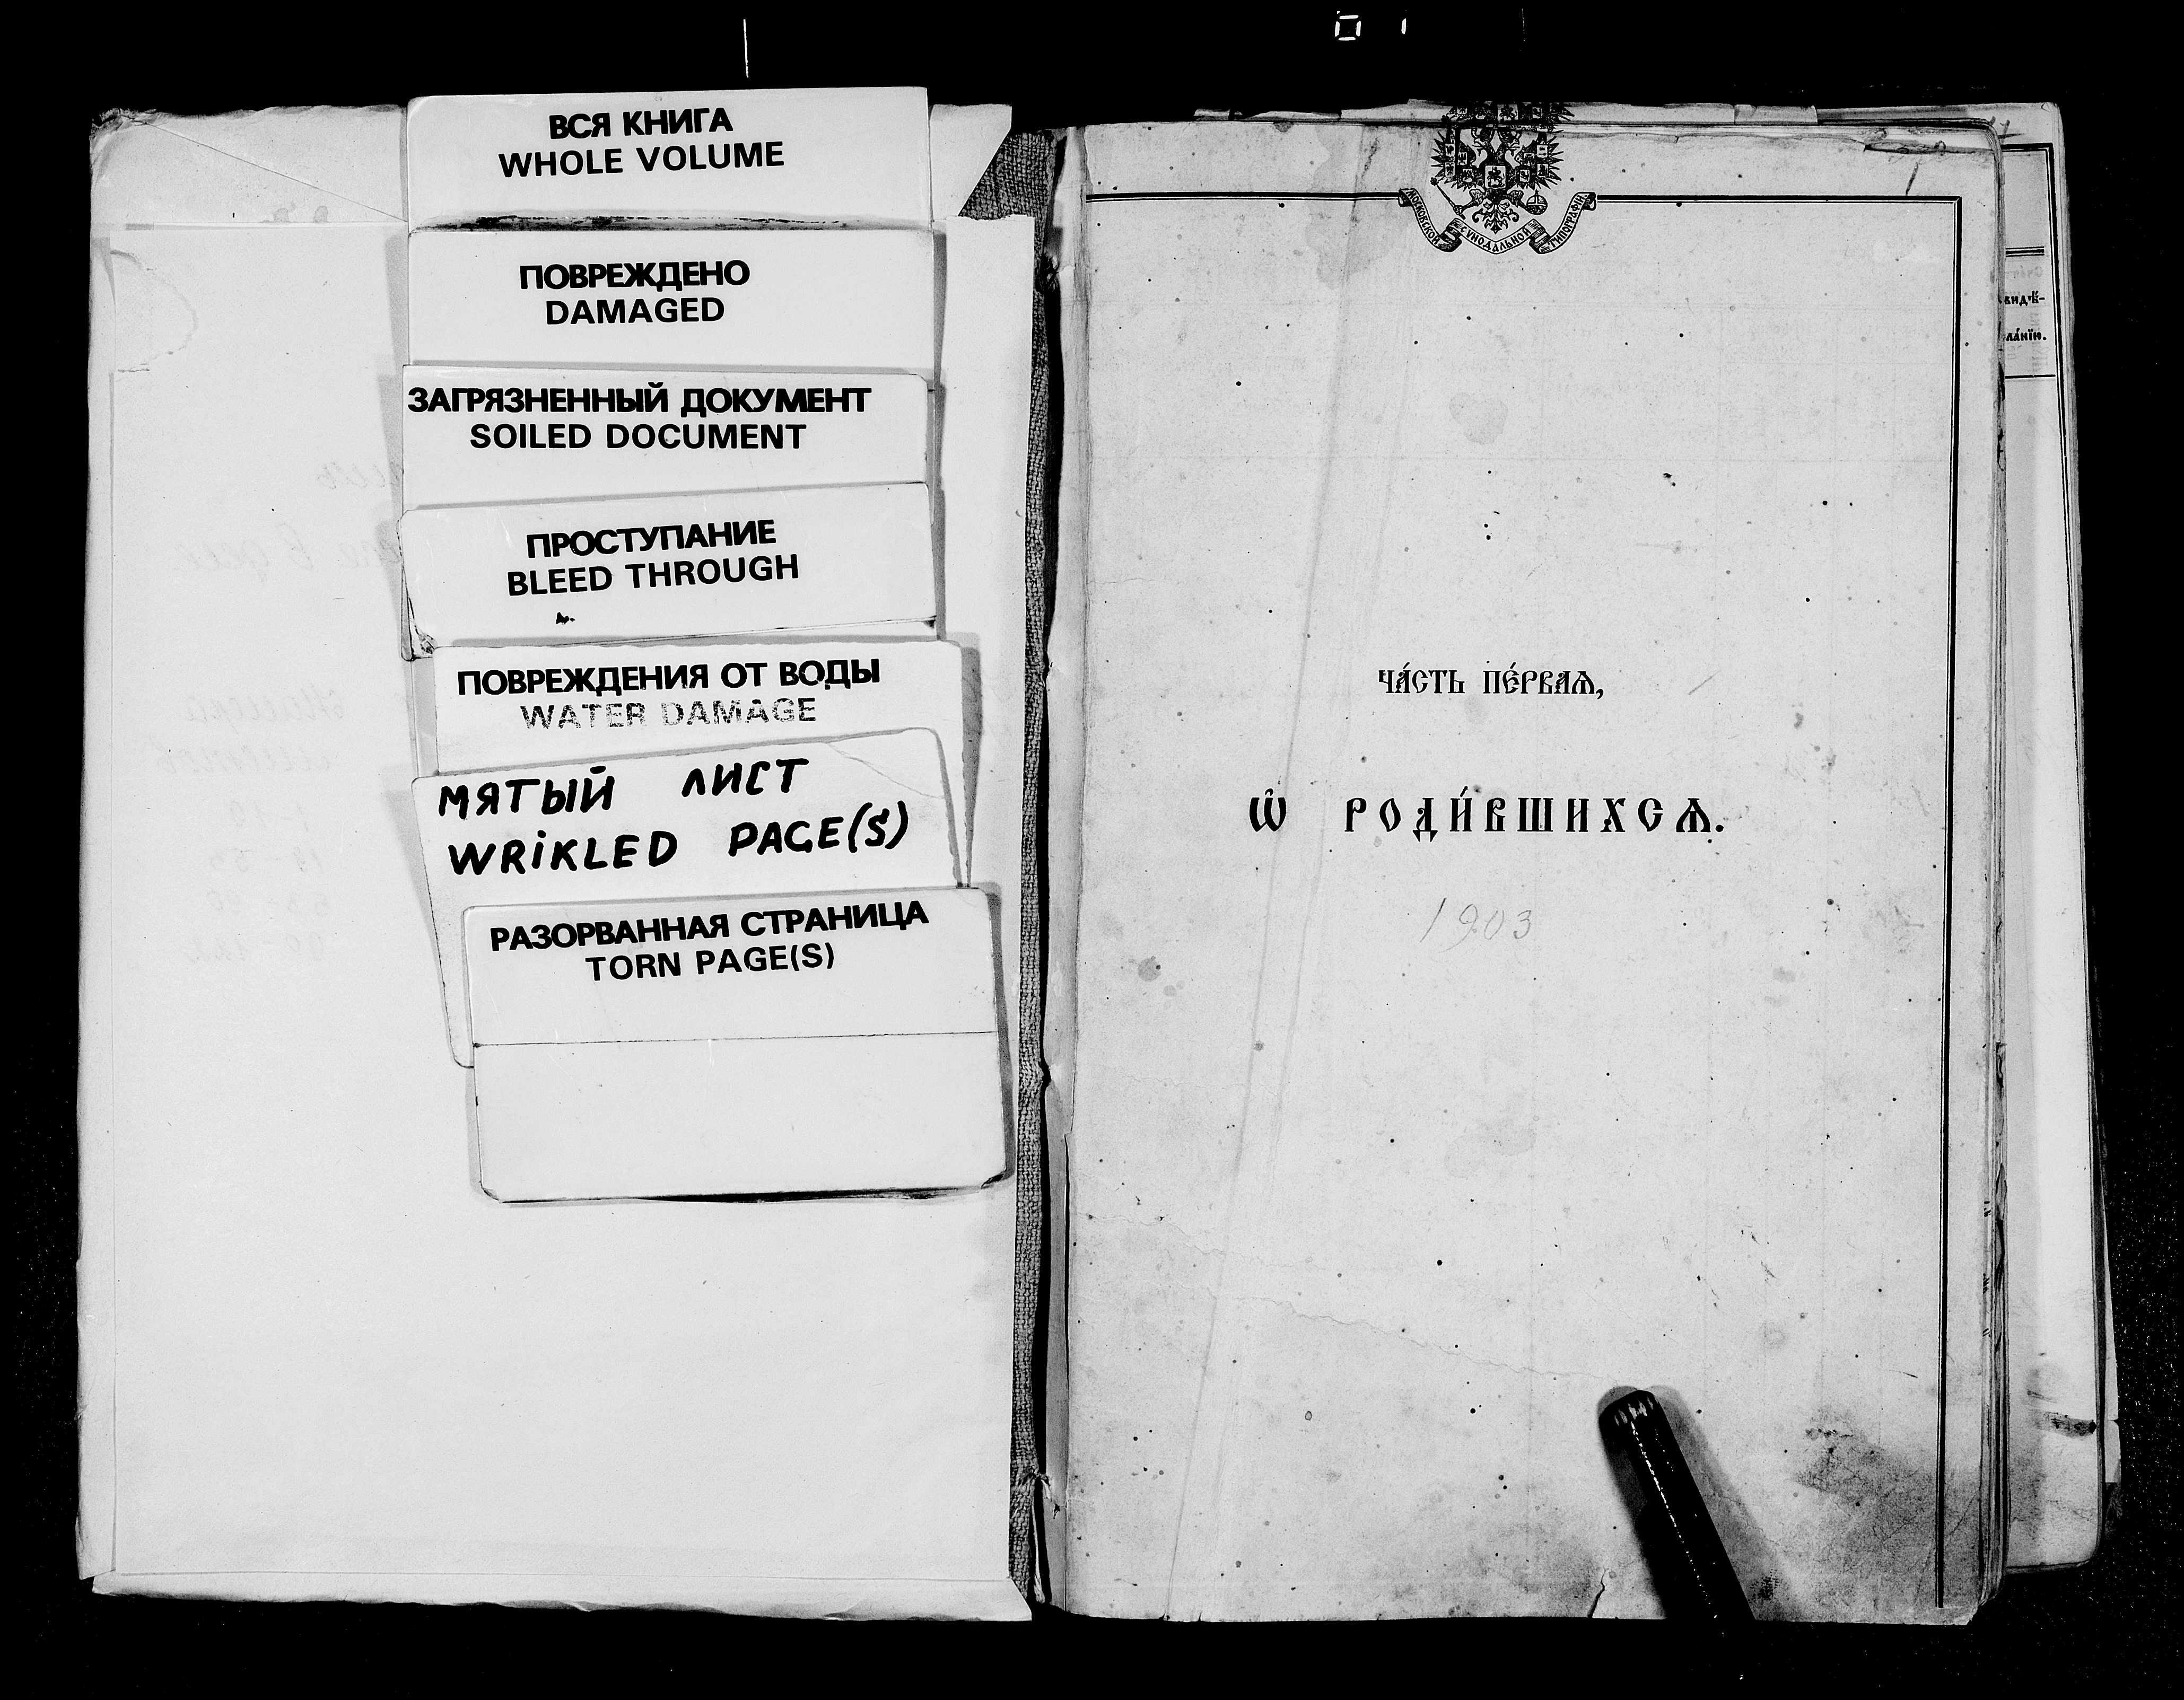 ВСЯ КНИГА
WHOLE VOLUME
ПОВРЕЖДЕНО
DAMAGED
ЗАГРЯЗНЕННЫЙ ДОКУМЕНТ
SOILED DOCUMENT
ПРОСТУПАНИЕ
BLEED THROUGH
ПОВРЕЖДЕНИЯ ОТ ВОДЫ
WATER DAMAGE
МЯТЫЙ ЛИСТ
WRiKLED PAGE(S)
РАЗОРВАННАЯ СТРАНИЦА
TORN PAGE(S)
1
МОСКОВСКОЙ СУНОДАЛЬНОЙ ТИПОГРАФІИ
ЧА́СТЬ ПЕ́РВАѦ,
Ѽ РОДИ́ВШИХСѦ.
1903
видѣ-
ла́нїю.